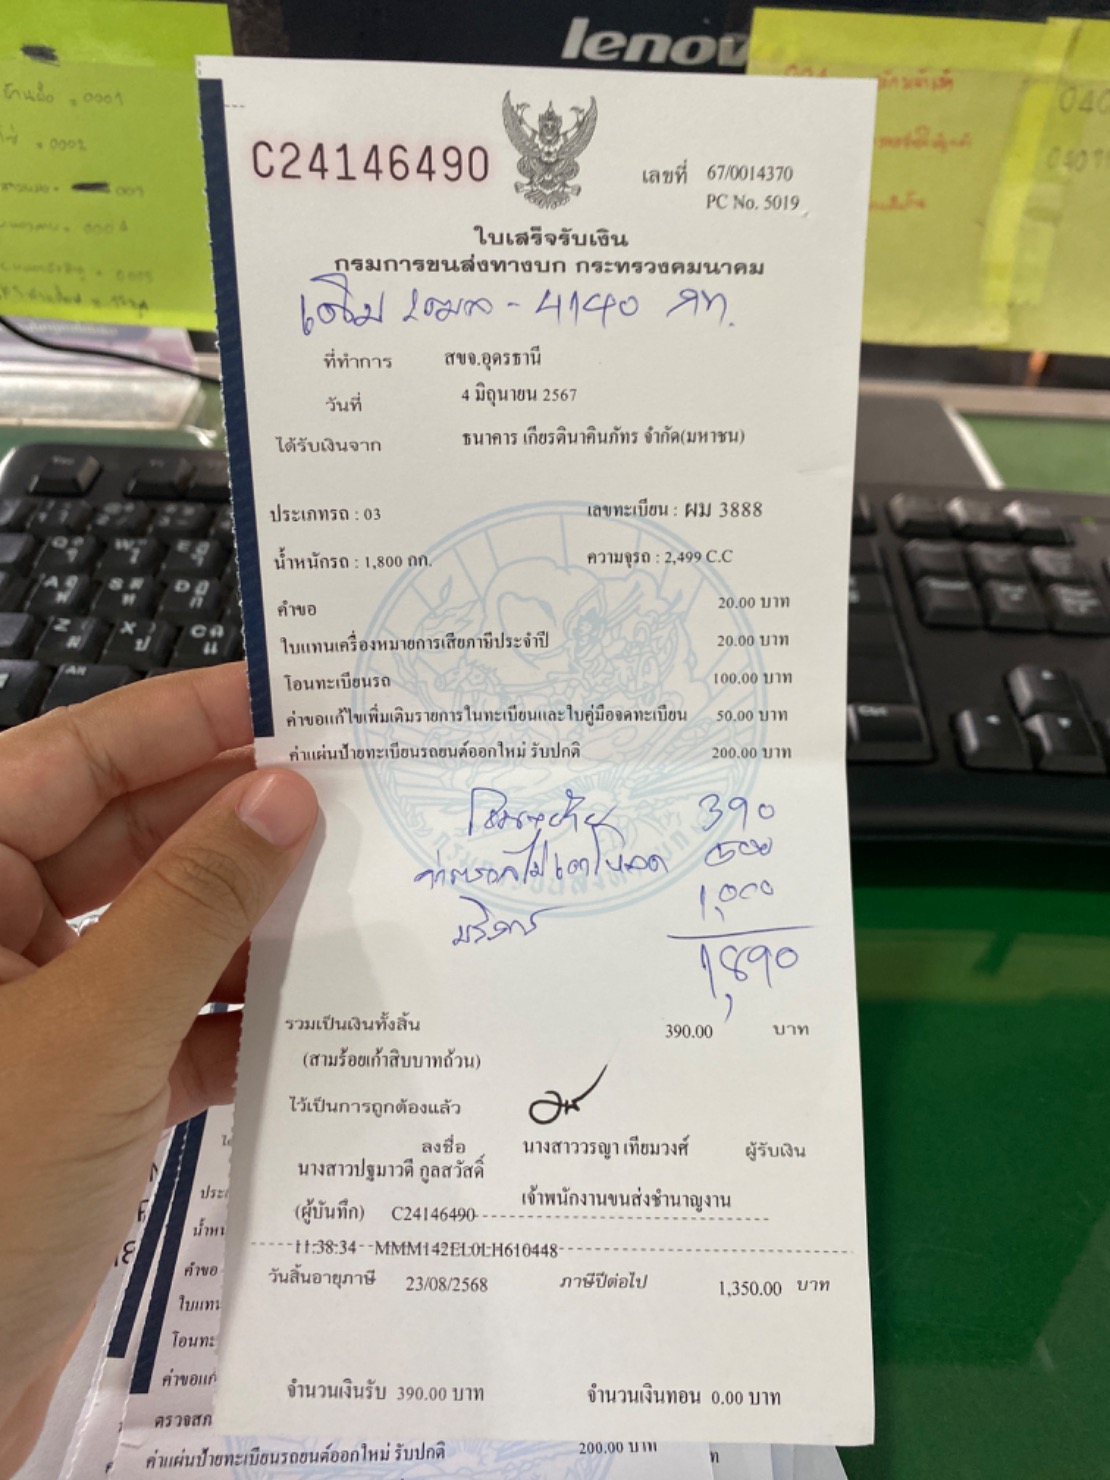 lenovo
C24146490
เลขที่ 67/0014370
PC No. 5019
ใบเสร็จรับเงิน
กรมการขนส่งทางบก กระทรวงคมนาคม
เดิม 2ฒมวล - 4140 กท.
ที่ทำการ สขจ.อุดรธานี
วันที่ 4 มิถุนายน 2567
ได้รับเงินจาก ธนาคาร เกียรตินาคินภัทร จำกัด(มหาชน)
ประเภทรถ : 03 เลขทะเบียน : ผม 3888
น้ำหนักรถ : 1,800 กก. ความจุรถ : 2,499 C.C
คำขอ 20.00 บาท
ใบแทนเครื่องหมายการเสียภาษีประจำปี 20.00 บาท
โอนทะเบียนรถ 100.00 บาท
ค่าขอแก้ไขเพิ่มเติมรายการในทะเบียนและใบคู่มือจดทะเบียน 50.00 บาท
ค่าแผ่นป้ายทะเบียนรถยนต์ออกใหม่ รับปกติ 200.00 บาท
390
500
บริการ 1,000
1,890
รวมเป็นเงินทั้งสิ้น 390.00 บาท
(สามร้อยเก้าสิบบาทถ้วน)
ไว้เป็นการถูกต้องแล้ว
ลงชื่อ นางสาววรญา เทียมวงศ์ ผู้รับเงิน
นางสาวปฐมาวดี กูลสวัสดิ์
เจ้าพนักงานขนส่งชำนาญงาน
(ผู้บันทึก) C24146490
11:38:34 MMM142EL0LH610448
วันสิ้นอายุภาษี 23/08/2568 ภาษีปีต่อไป 1,350.00 บาท
จำนวนเงินรับ 390.00 บาท จำนวนเงินทอน 0.00 บาท
คำขอ
ใบแทน
โอนทะ
ค่าขอแก้
ตรวจสภ
ค่าแผ่นป้ายทะเบียนรถยนต์ออกใหม่ รับปกติ 200.00 บาท